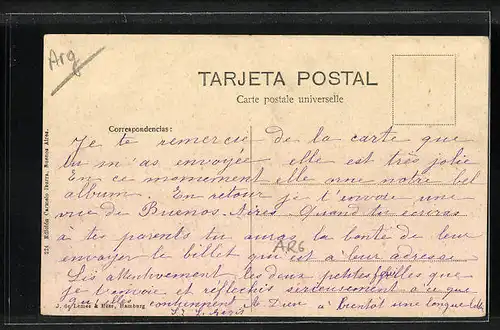 Arg
TARJETA POSTAL
Carte postale universelle
Correspondencias:
Je te remercie de la carte que
tu m'as envoyée elle est très jolie
En ce momement elle orne notre bel
album. En retour je t'envoie une
vue de Buenos-Aires. Quand tu ecriras
à tes parents tu auras la bonté de leur
envoyer le billet qui est à leur adresse
ARG
Lis attentivement les deux petites feuilles que
je t'envoie et réflechis serieusement a ce que
qu'elles contiennent A Dieu à bientôt une longue lettre
224 Edición Carmelo Ibarra, Buenos Aires.
& Hess, Hamburg